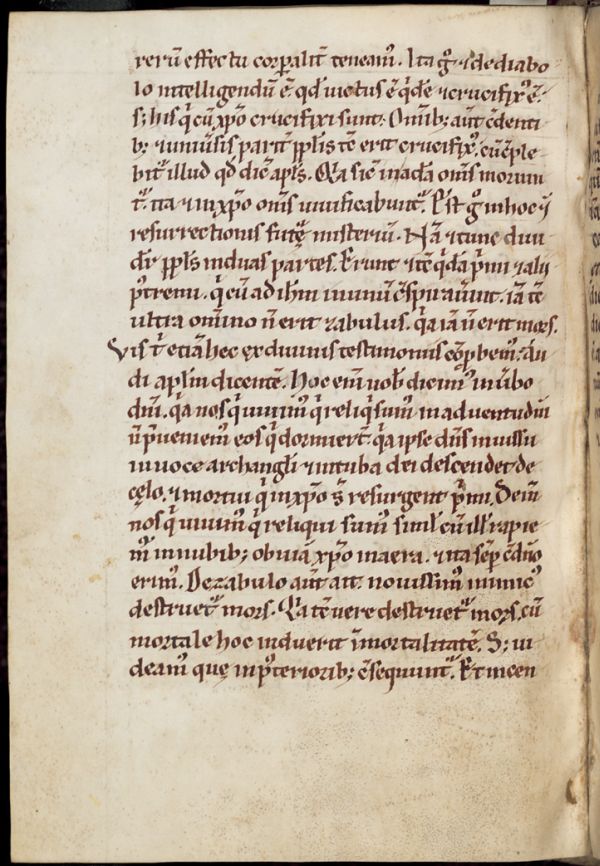 rerū effectu corp̄alit̄ teneam᷒. Ita g̊ ⁊ de diabo
lo intelligendū ē. qd̄ uictus ē q̇dē ⁊ crucifix᷒ ē.
s; his q̄ cū xp̄o crucifixi sunt. Om̄ib; aut̄ c̄denti
b; ⁊ uniūsis parit̄ ppl̄is tc̄ erit crucifix᷒. cū c̄ple
bit᷑ illud qd̄ dic̄ apl̄s. Q̄a sic̄ in adā om̄s moriun
t᷑. ita ⁊ in xp̄o om̄s uiuificabunt᷑. Est g̊ in hoc ⁊
resurrectionis futę misteriū. Nā ⁊ tunc diui
det̄ ppl̄s in duas partes. Erunt ⁊ tc̄ q̇dā p̄mi ⁊ alii
postremi. q̄ cū ad ih̄m in unū c̄spirauīnt. iā tc̄
ultra omnino n̄ erit zabulus. q̇a iā n̄ erit mors.
Vis t̄ etiā hec ex diuinis testimoniis cōp̄bem᷒: Au
di aplm̄ dicentē. Hoc eni uob̄ dicim᷒ in ūbo
dn̄i. q̇a nos q̄ uiuim᷒ q̇ reliq̇ sum᷒ in aduentu dn̄i
n̄ p̄ueniem᷒ eos q̄ dormiert̄. q̇a ipse dn̄s in iussu
in uoce archangl̄i ⁊ in tuba dei descendet de
cęlo. ⁊ mortui q̄ in xp̄o s̄ resurgent p̄mi. Dein̄
nos q̄ uiuim᷒ q̇ reliqui sum᷒ simil̄ cū ill̄ rapie
m᷒ in nubib; obuiā xp̄o in aera. ⁊ ita semp̄ c̄ dn̄o
erim᷒. De zabulo aut̄ ait. nouissim᷒ inimic᷒
destruet᷑ mors. Q̄a tc̄ uere destruet᷑ mors. cū
mortale hoc induerit īmortalitatē. S; ui
deam᷒ quę in p᷒teriorib; c̄sequunt᷑. Et incen